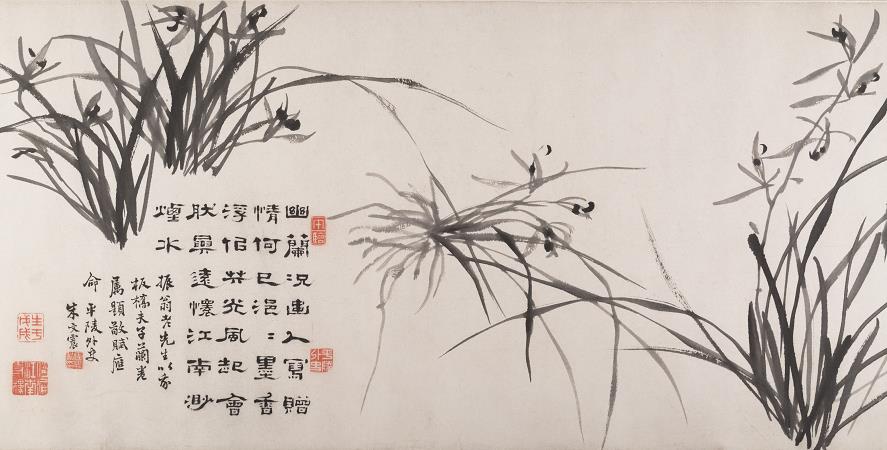 幽蘭況逸人寫贈
情何已浥〻墨香
浮佀共光風起會
遠懷江南渺
煙水
振翁老先生以家
板橋夫子蘭卷
屬題敬賦應
命 平陵外史
朱文震